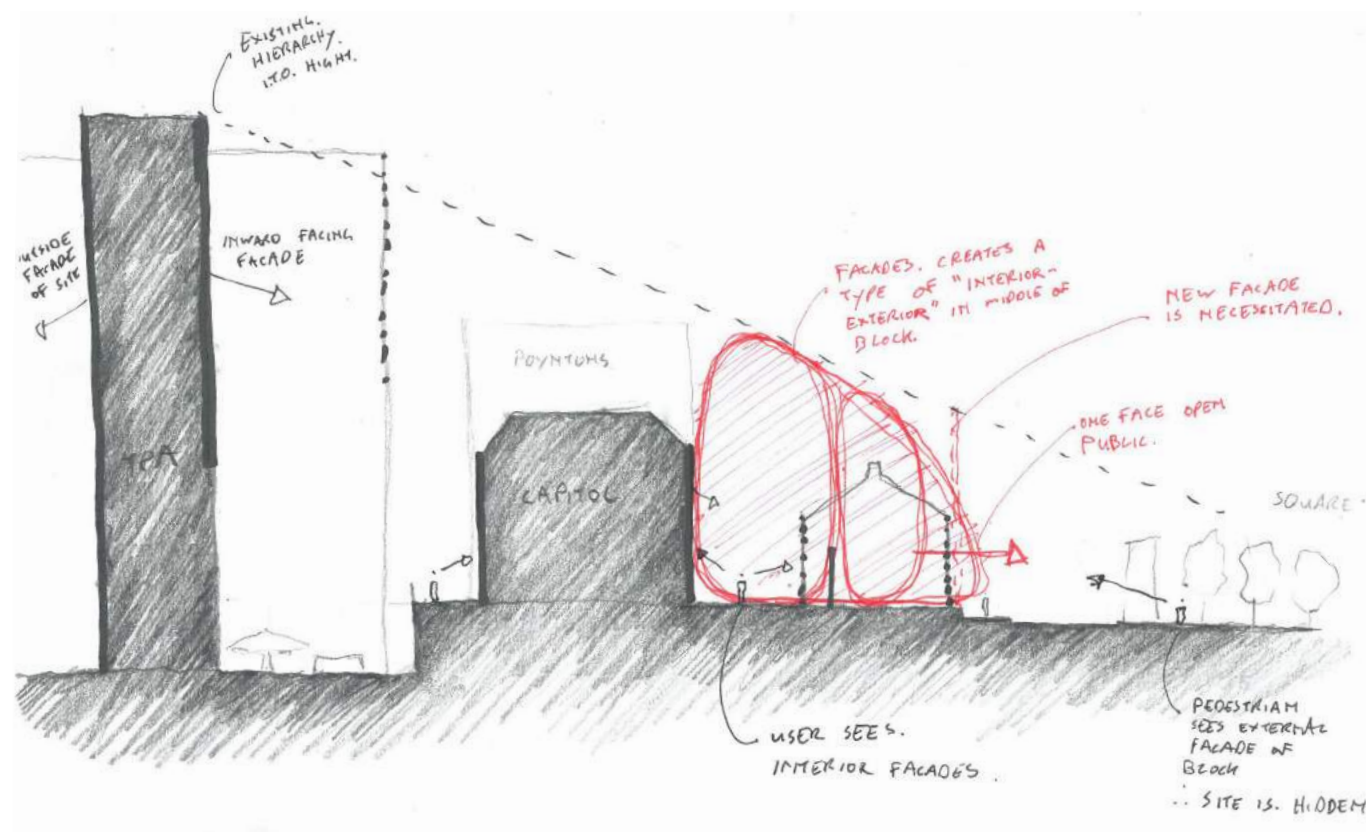 EXISTING.
HIERARCHY.
I.T.O. HIGHT.
OUTSIDE
FACADE
OF SITE
INWARD FACING
FACADE
TPA
POYNTONS
CAPITOL
FACADES. CREATES A
TYPE OF "INTERIOR-
EXTERIOR" IN MIDDLE OF
BLOCK.
NEW FACADE
IS NECESSITATED.
ONE FACE OPEN
PUBLIC.
SQUARE
USER SEES.
INTERIOR FACADES.
PEDESTRIAN
SEES EXTERNAL
FACADE OF
BLOCK
∴ SITE IS. HIDDEN